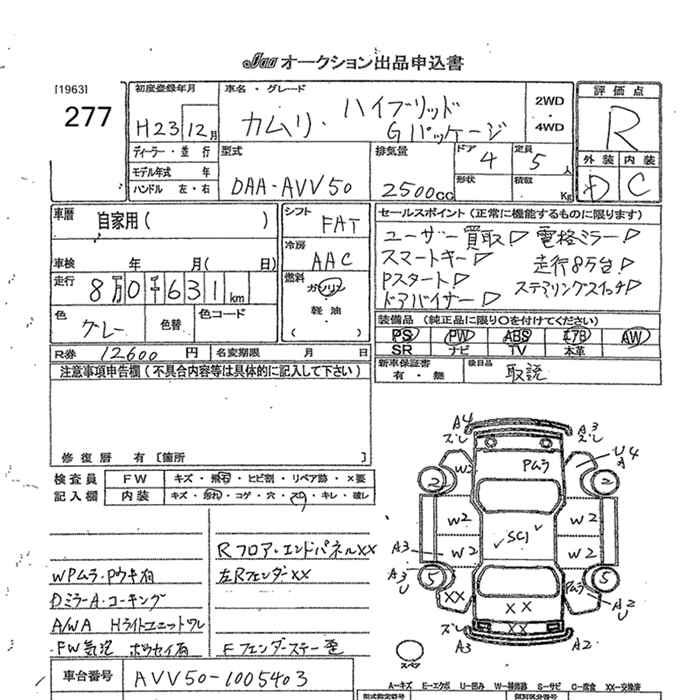 Jaa オークション出品申込書
[1963]
277
初度登録年月
H23 12月
車名・グレード
カムリ・ハイブリッド
Gパッケージ
2WD
・
4WD
評価点
R
外装 内装
D C
ディーラー・並行
モデル年式 年
ハンドル 左・右
型式
DAA-AVV50
排気量
2500cc
ドア
4
形状
定員
5人
積載
Kg
車歴
自家用( )
車検 年 月( 日)
走行
8万0千631km
色
グレー
色替
色コード
シフト
FAT
冷房
AAC
燃料
ガソリン
軽油
( )
セールスポイント (正常に機能するものに限ります)
ユーザー買取▷ 電格ミラー▷
スマートキー▷ 走行8万台!
Pスタート▷ ステアリングスイッチ▷
ドアバイザー▷
装備品 (純正品に限り○を付けてください)
PS PW ABS エアB AW
SR ナビ TV 本革
新車保証書
有・無
後日品
取説
R券 12600円
名変期限 月 日
注意事項申告欄(不具合内容等は具体的に記入して下さい)
修復歴 有〔箇所 〕
検査員
記入欄
FW キズ・飛石・ヒビ割・リペア跡・×要
内装 キズ・汚れ・コゲ・穴・スレ・キレ・破レ
WPムラ・Pウキ有
Dミラー A・コーキング
A/WA Hライトユニットワレ
FW気泡 ボウセイ有
Rフロア・エンドパネルXX
左RフェンダーXX
Fフェンダーステー歪
A4
ズレ
A3
ズレ
U4
A
W2
Pムラ
2
2
W2
W2
SC1
A3
W2
W2
A3
U
5
5
XX
XX
Pムラ
A2
U
ズレ
XX
A3
A2
スペア
A-キズ E-エクボ U-凹み W-補修跡 S-サビ C-腐食 XX-交換済
車台番号
AVV50-1005403
型式指定番号
類別区分番号